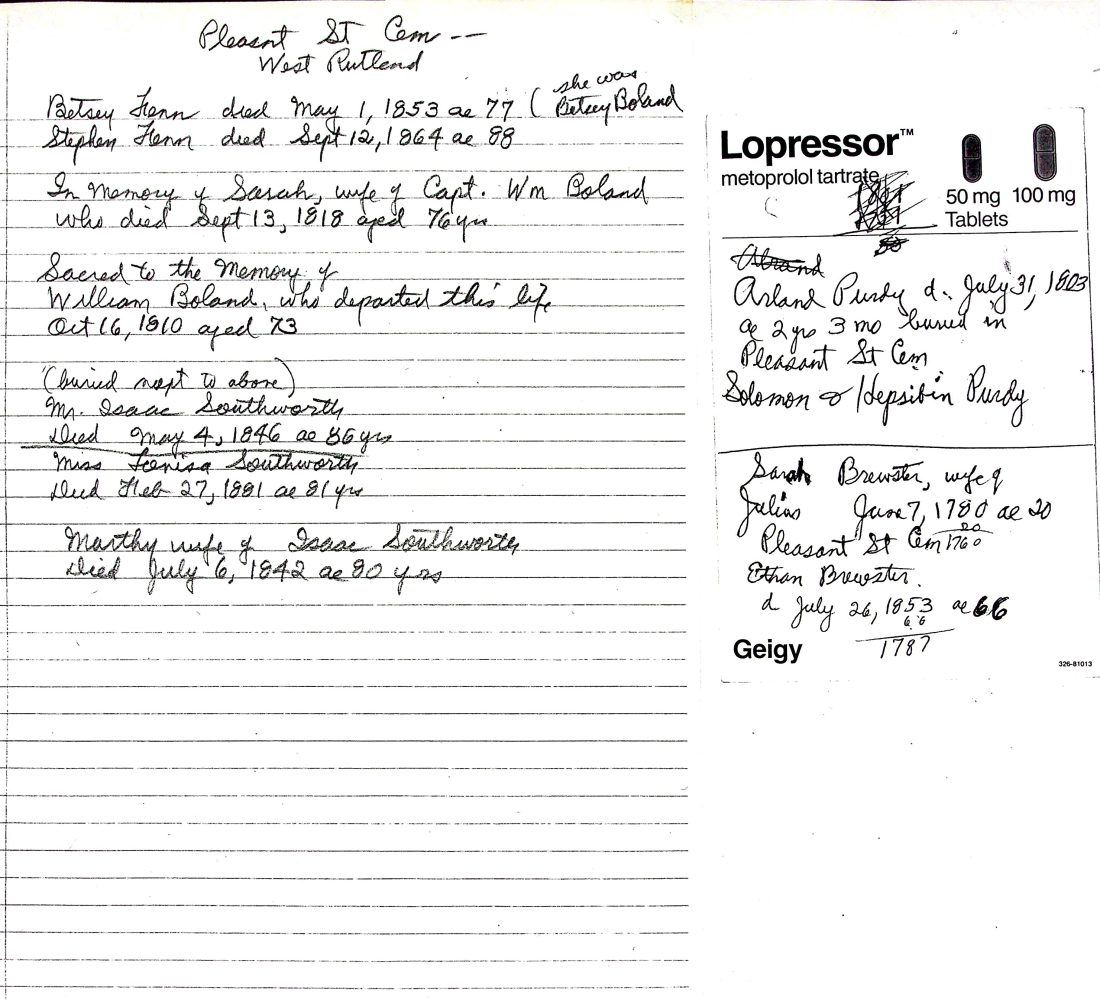 Pleasnt St Cem --
West Rutland
she was
Betsey Fenn died May 1, 1853 ae 77 ( Betsey Boland
Stephen Fenn died Sept 12, 1864 ae 88
In Memory of Sarah, wife of Capt. Wm Boland
who died Sept 13, 1818 aged 76 yrs
Sacred to the Memory of
William Boland, who departed this life
Oct 16, 1810 aged 73
(buried next to above)
Mr. Isaac Southworth
Died May 4, 1846 ae 86 yrs
Miss Southworth
Died Feb 27, 1881 ae 81 yrs
Marthy wife of Isaac Southworth
Died July 6, 1842 ae 80 yrs
Lopressor™
metoprolol tartrate
50 mg 100 mg
Tablets
Arland Purdy d. July 31, 1803
ae 2 yrs 3 mo buried in
Pleasant St Cem
Solomon & Hepsibin Purdy
Sarah Brewster, wife of
Julius June 7, 1780 ae 20
20
Pleasant St Cem 1760
Ethan Brewster.
d July 26, 1853 ae 66
66
1787
Geigy
326-81013